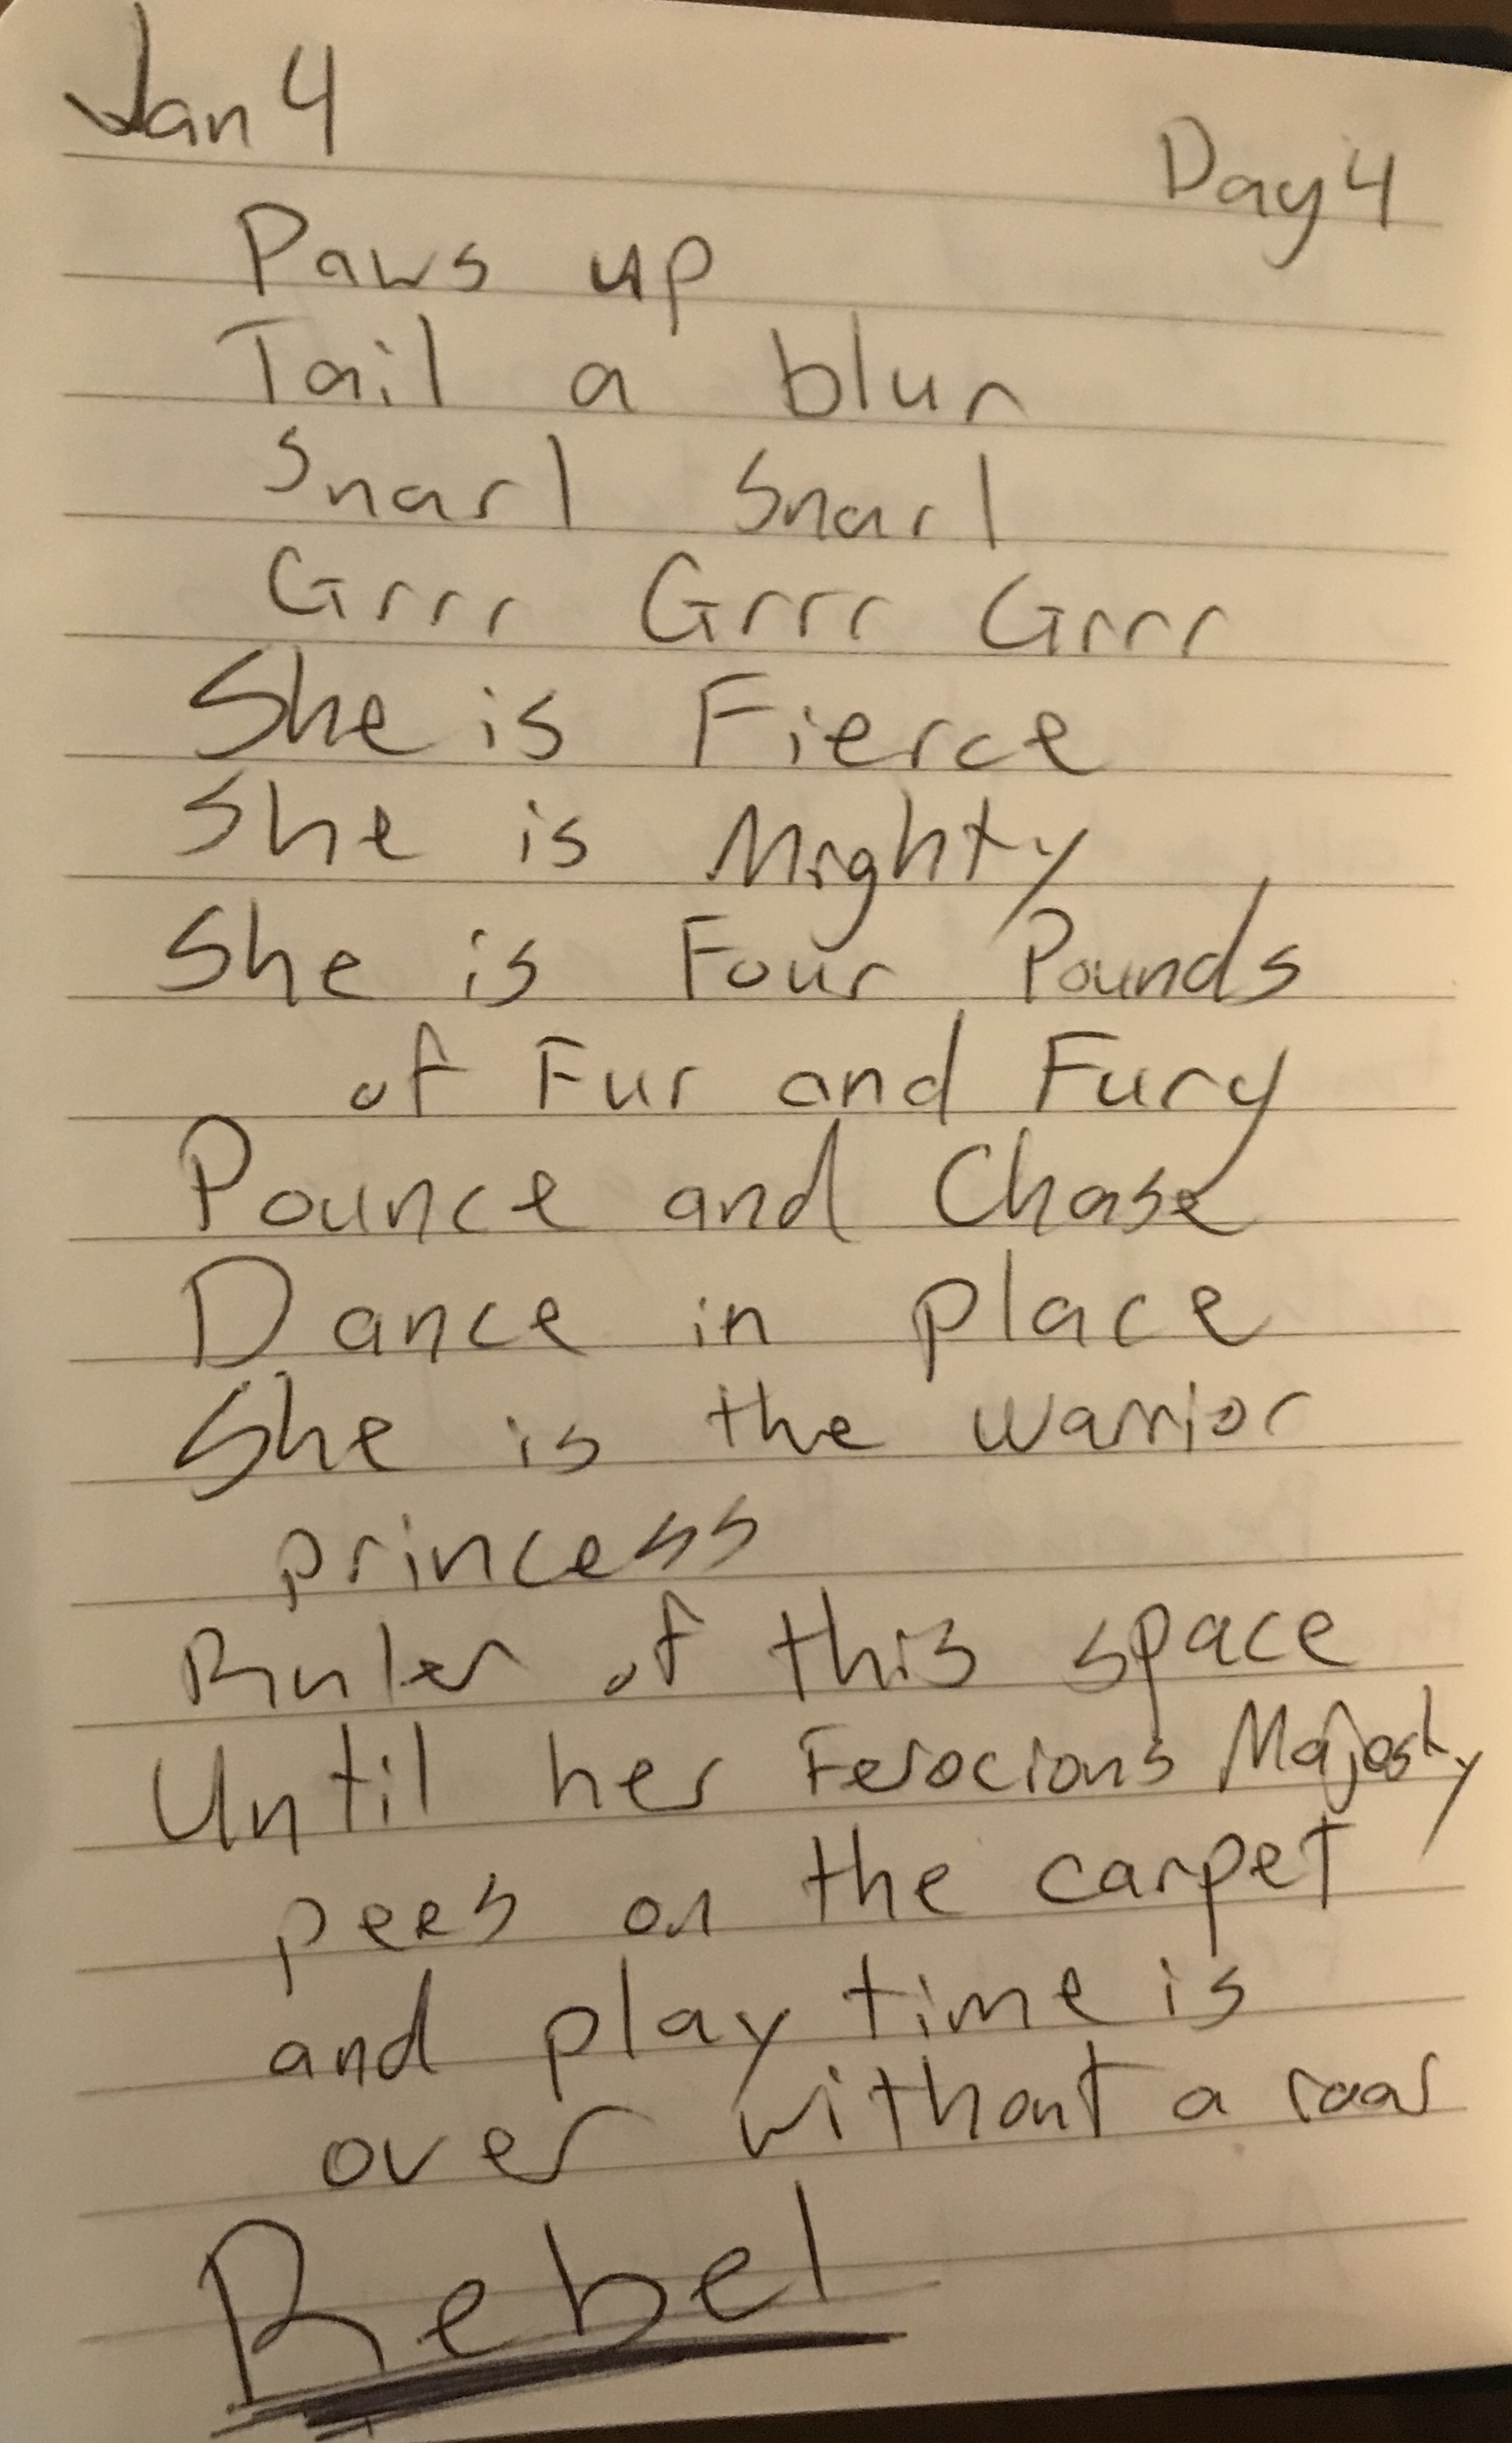 Jan 4
Day 4
Paws up
Tail a blur
Snarl Snarl
Grrr Grrr Grrr
She is Fierce
She is Mighty
She is Four Pounds
of Fur and Fury
Pounce and Chase
Dance in place
She is the warrior
princess
Ruler of this space
Until her Ferocious Majesty
pees on the carpet
and play time is
over without a roar
Rebel